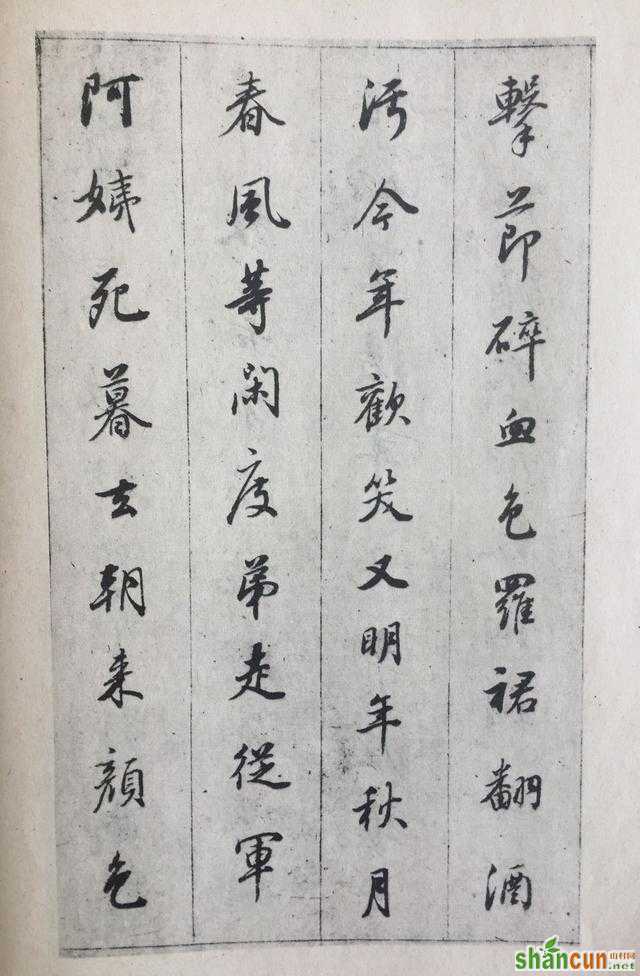 擊節碎血色羅裙翻酒
汚今年歡笑又明年秋月
春風等閑度弟走從軍
阿姨死暮去朝来顏色
shancun
山村网
.net